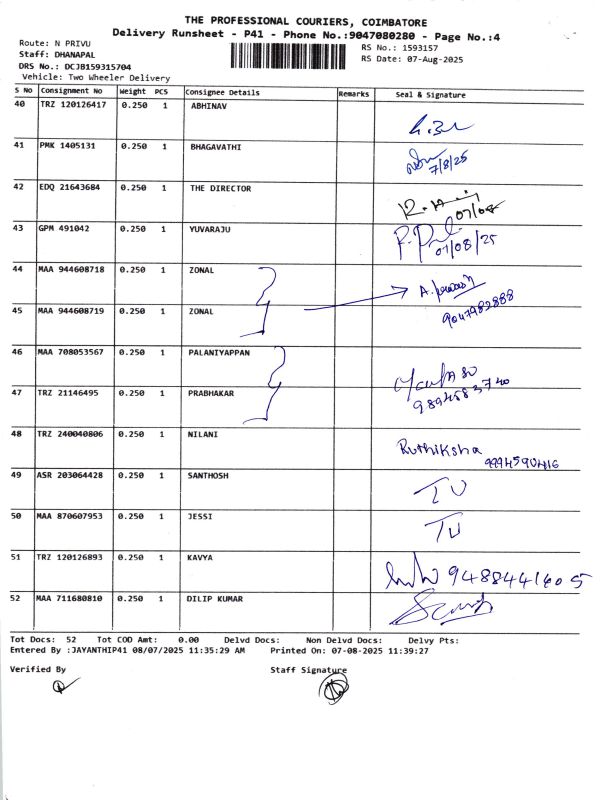 THE PROFESSIONAL COURIERS, COIMBATORE
Delivery Runsheet - P41 - Phone No.:9047080280 - Page No.:4
Route: N PRIVU
RS No.: 1593157
Staff: DHANAPAL
RS Date: 07-Aug-2025
DRS No.: DCJB159315704
Vehicle: Two Wheeler Delivery
S No Consignment No Weight PCS Consignee Details Remarks Seal & Signature
40 TRZ 120126417 0.250 1 ABHINAV
41 PMK 1405131 0.250 1 BHAGAVATHI
7/8/25
42 EDQ 21643684 0.250 1 THE DIRECTOR
07/08
43 GPM 491042 0.250 1 YUVARAJU
07/08/25
44 MAA 944608718 0.250 1 ZONAL
45 MAA 944608719 0.250 1 ZONAL
9047982888
46 MAA 708053567 0.250 1 PALANIYAPPAN
47 TRZ 21146495 0.250 1 PRABHAKAR
9894583740
48 TRZ 240040806 0.250 1 NILANI
Ruthiksha
9994590416
49 ASR 203064428 0.250 1 SANTHOSH
50 MAA 870607953 0.250 1 JESSI
51 TRZ 120126893 0.250 1 KAVYA
9488441605
52 MAA 711680810 0.250 1 DILIP KUMAR
Tot Docs: 52 Tot COD Amt: 0.00 Delvd Docs: Non Delvd Docs: Delvy Pts:
Entered By :JAYANTHIP41 08/07/2025 11:35:29 AM Printed On: 07-08-2025 11:39:27
Verified By Staff Signature